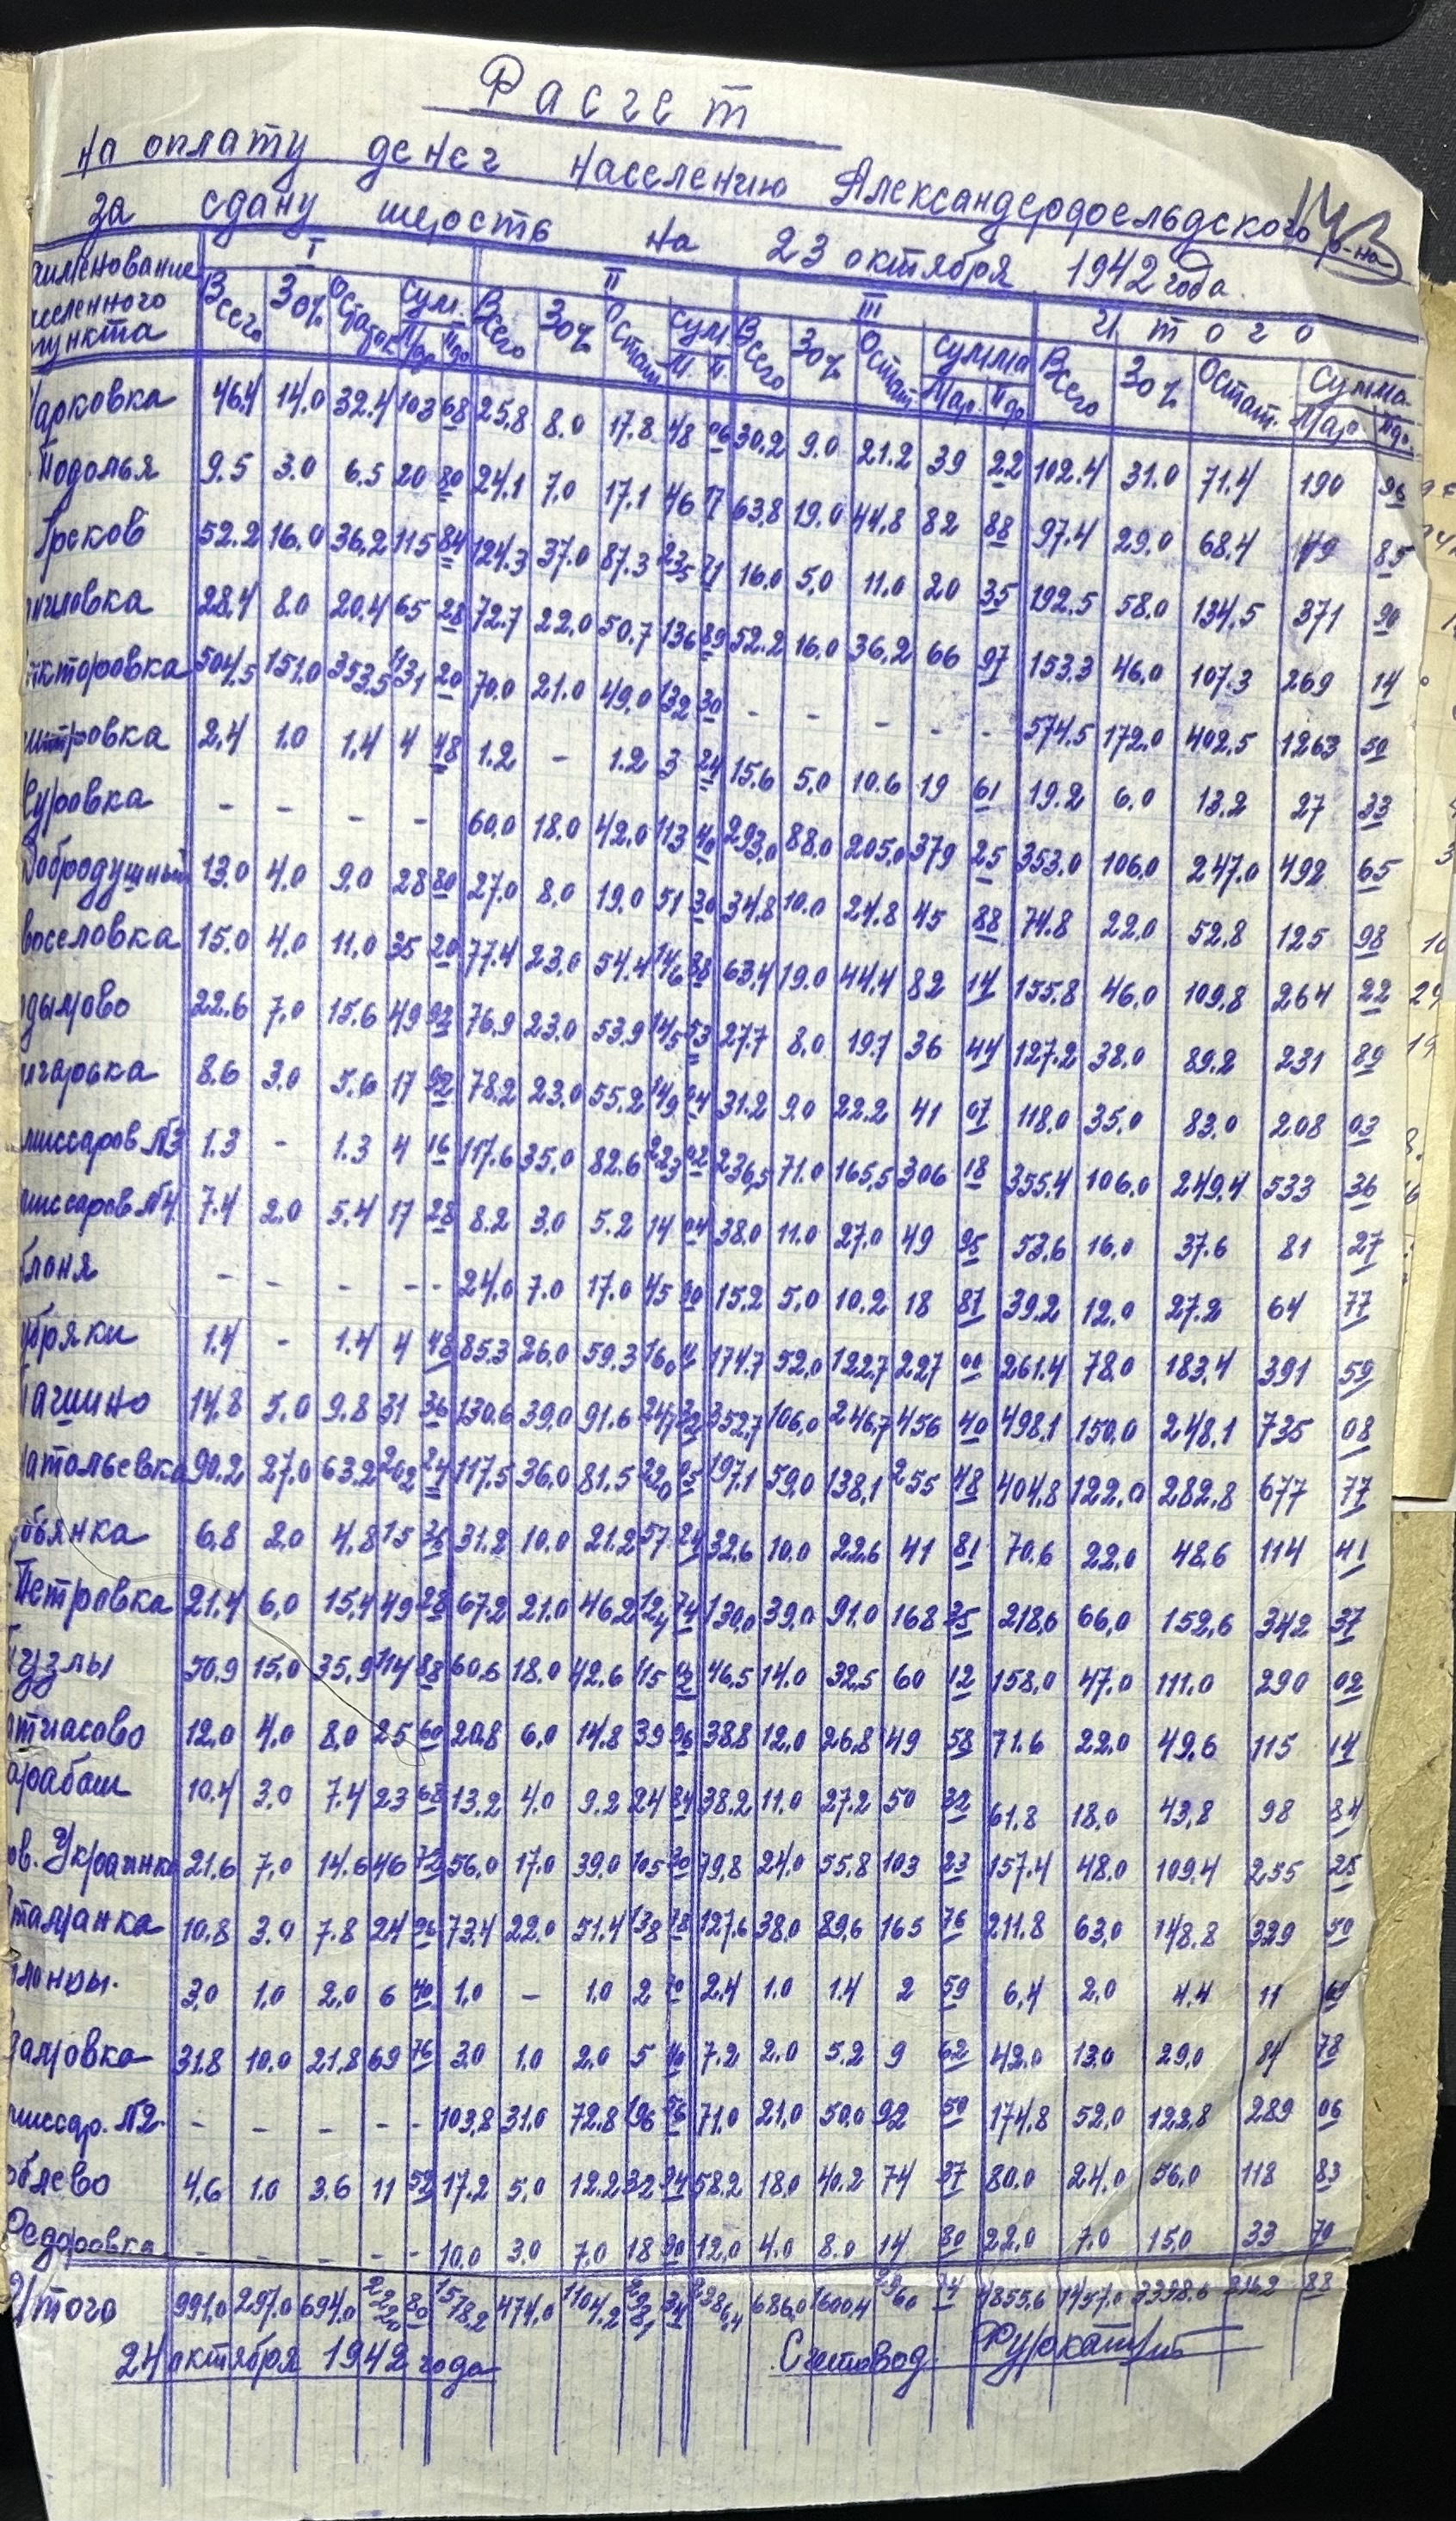 Расчет
на оплату денег населению Александерфельдского р-на
за сдану шерсть на 23 октября 1942 года.
143
аименование I II III Итого
аселенного Всего 30% Остаток Сум. Всего 30% Остат. Сум Всего 30% Остат. Сумма Всего 30% Остат. Сумма
пункта Мар. Пф. М. П. Мар. Пф. Мар. Пф.
Марковка 46.4 14.0 32.4 103 68 25.8 8.0 17.8 48 06 30.2 9.0 21.2 39 22 102.4 31.0 71.4 190 96
Подолья 9.5 3.0 6.5 20 80 24.1 7.0 17.1 46 17 63.8 19.0 44.8 82 88 97.4 29.0 68.4 149 85
Гросков 52.2 16.0 36.2 115 84 124.3 37.0 87.3 235 71 16.0 5.0 11.0 20 35 192.5 58.0 134.5 371 90
ниловка 28.4 8.0 20.4 65 28 72.7 22.0 50.7 136 89 52.2 16.0 36.2 66 97 153.3 46.0 107.3 269 14
икторовка 504.5 151.0 353.5 1131 20 70.0 21.0 49.0 132 30 - - - - - 574.5 172.0 402.5 1263 50
митровка 2.4 1.0 1.4 4 48 1.2 - 1.2 3 24 15.6 5.0 10.6 19 61 19.2 6.0 13.2 27 33
Суровка - - - - 60.0 18.0 42.0 113 40 293.0 88.0 205.0 379 25 353.0 106.0 247.0 492 65
Добродушный 13.0 4.0 9.0 28 80 27.0 8.0 19.0 51 30 34.8 10.0 24.8 45 88 74.8 22.0 52.8 125 98
воселовка 15.0 4.0 11.0 35 20 77.4 23.0 54.4 146 88 63.4 19.0 44.4 82 14 155.8 46.0 109.8 264 22
дымово 22.6 7.0 15.6 49 92 76.9 23.0 53.9 145 53 27.7 8.0 19.7 36 44 127.2 38.0 89.2 231 89
лгарка 8.6 3.0 5.6 17 92 78.2 23.0 55.2 149 04 31.2 9.0 22.2 41 07 118.0 35.0 83.0 208 03
миссаров №3 1.3 - 1.3 4 16 117.6 35.0 82.6 223 02 236.5 71.0 165.5 306 18 355.4 106.0 249.4 533 36
миссаров №4 7.4 2.0 5.4 17 28 8.2 3.0 5.2 14 04 38.0 11.0 27.0 49 95 53.6 16.0 37.6 81 27
блоня - - - - - 24.0 7.0 17.0 45 90 15.2 5.0 10.2 18 87 39.2 12.0 27.2 64 77
бряки 1.4 - 1.4 4 48 85.3 26.0 59.3 160 11 174.7 52.0 122.7 227 00 261.4 78.0 183.4 391 59
ашино 14.8 5.0 9.8 31 36 130.6 39.0 91.6 247 32 352.7 106.0 246.7 456 40 498.1 150.0 248.1 735 08
натольевка 90.2 27.0 63.2 202 24 117.5 36.0 81.5 220 05 197.1 59.0 138.1 255 48 404.8 122.0 282.8 677 77
бянка 6.8 2.0 4.8 15 36 31.2 10.0 21.2 57 24 32.6 10.0 22.6 41 81 70.6 22.0 48.6 114 41
Петровка 21.4 6.0 15.4 49 28 67.2 21.0 46.2 124 74 130.0 39.0 91.0 168 35 218.6 66.0 152.6 342 37
Бузлы 50.9 15.0 35.9 114 88 60.6 18.0 42.6 115 02 46.5 14.0 32.5 60 12 158.0 47.0 111.0 290 02
атиасово 12.0 4.0 8.0 25 60 20.8 6.0 14.8 39 96 38.8 12.0 26.8 49 58 71.6 22.0 49.6 115 14
арабаш 10.4 3.0 7.4 23 68 13.2 4.0 9.2 24 84 38.2 11.0 27.2 50 32 61.8 18.0 43.8 98 84
ов. Украинка 21.6 7.0 14.6 46 72 56.0 17.0 39.0 105 30 79.8 24.0 55.8 103 23 157.4 48.0 109.4 255 25
таманка 10.8 3.0 7.8 24 96 73.4 22.0 51.4 138 78 127.6 38.0 89.6 165 76 211.8 63.0 148.8 329 50
3.0 1.0 2.0 6 40 1.0 - 1.0 2 70 2.4 1.0 1.4 2 59 6.4 2.0 4.4 11 69
заровка 31.8 10.0 21.8 69 76 3.0 1.0 2.0 5 40 7.2 2.0 5.2 9 62 42.0 13.0 29.0 84 78
миссар. №2 - - - - - 103.8 31.0 72.8 196 56 71.0 21.0 50.0 92 50 174.8 52.0 122.8 289 06
облево 4.6 1.0 3.6 11 52 17.2 5.0 12.2 32 94 58.2 18.0 40.2 74 37 80.0 24.0 56.0 118 83
Федоровка - - - - - 10.0 3.0 7.0 18 90 12.0 4.0 8.0 14 80 22.0 7.0 15.0 33 70
Итого 991.0 297.0 694.0 2220 80 1578.2 474.0 1104.2 2981 34 2286.4 686.0 1600.4 2960 74 4855.6 1457.0 3398.6 88
24 октября 1942 года Счетовод